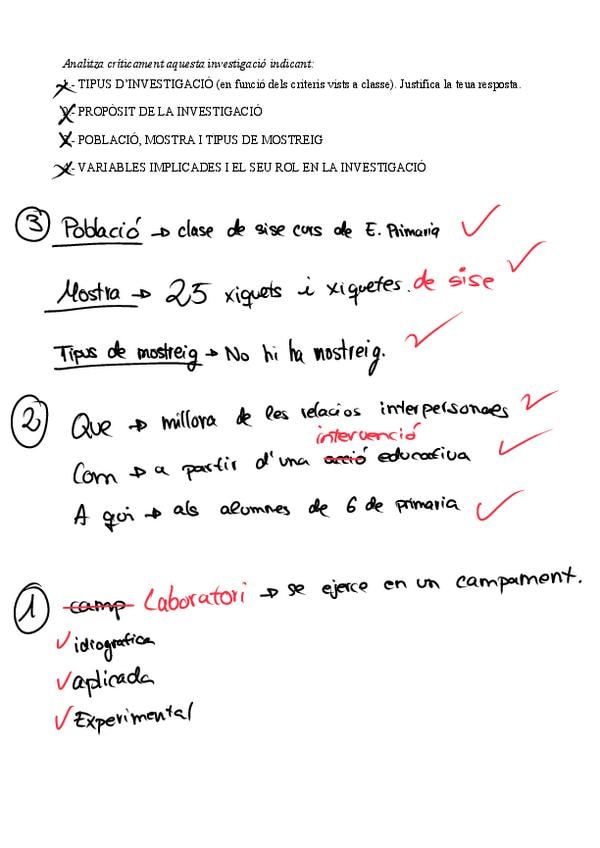 Analitza críticament aquesta investigació indicant:
- TIPUS D'INVESTIGACIÓ (en funció dels criteris vists a classe). Justifica la teua resposta.
- PROPÒSIT DE LA INVESTIGACIÓ
- POBLACIÓ, MOSTRA I TIPUS DE MOSTREIG
- VARIABLES IMPLICADES I EL SEU ROL EN LA INVESTIGACIÓ
3 Població → clase de sise curs de E. Primaria
Mostra → 25 xiquets i xiquetes. de sise
Tipus de mostreig → No hi ha mostreig.
2 Que → millora de les relacios interpersonaes
intervenció
Com → a partir d'una acció educativa
A qui → als alumnes de 6 de primaria
1 camp Laboratori → se ejerce en un campament.
idiografica
aplicada
Experimental